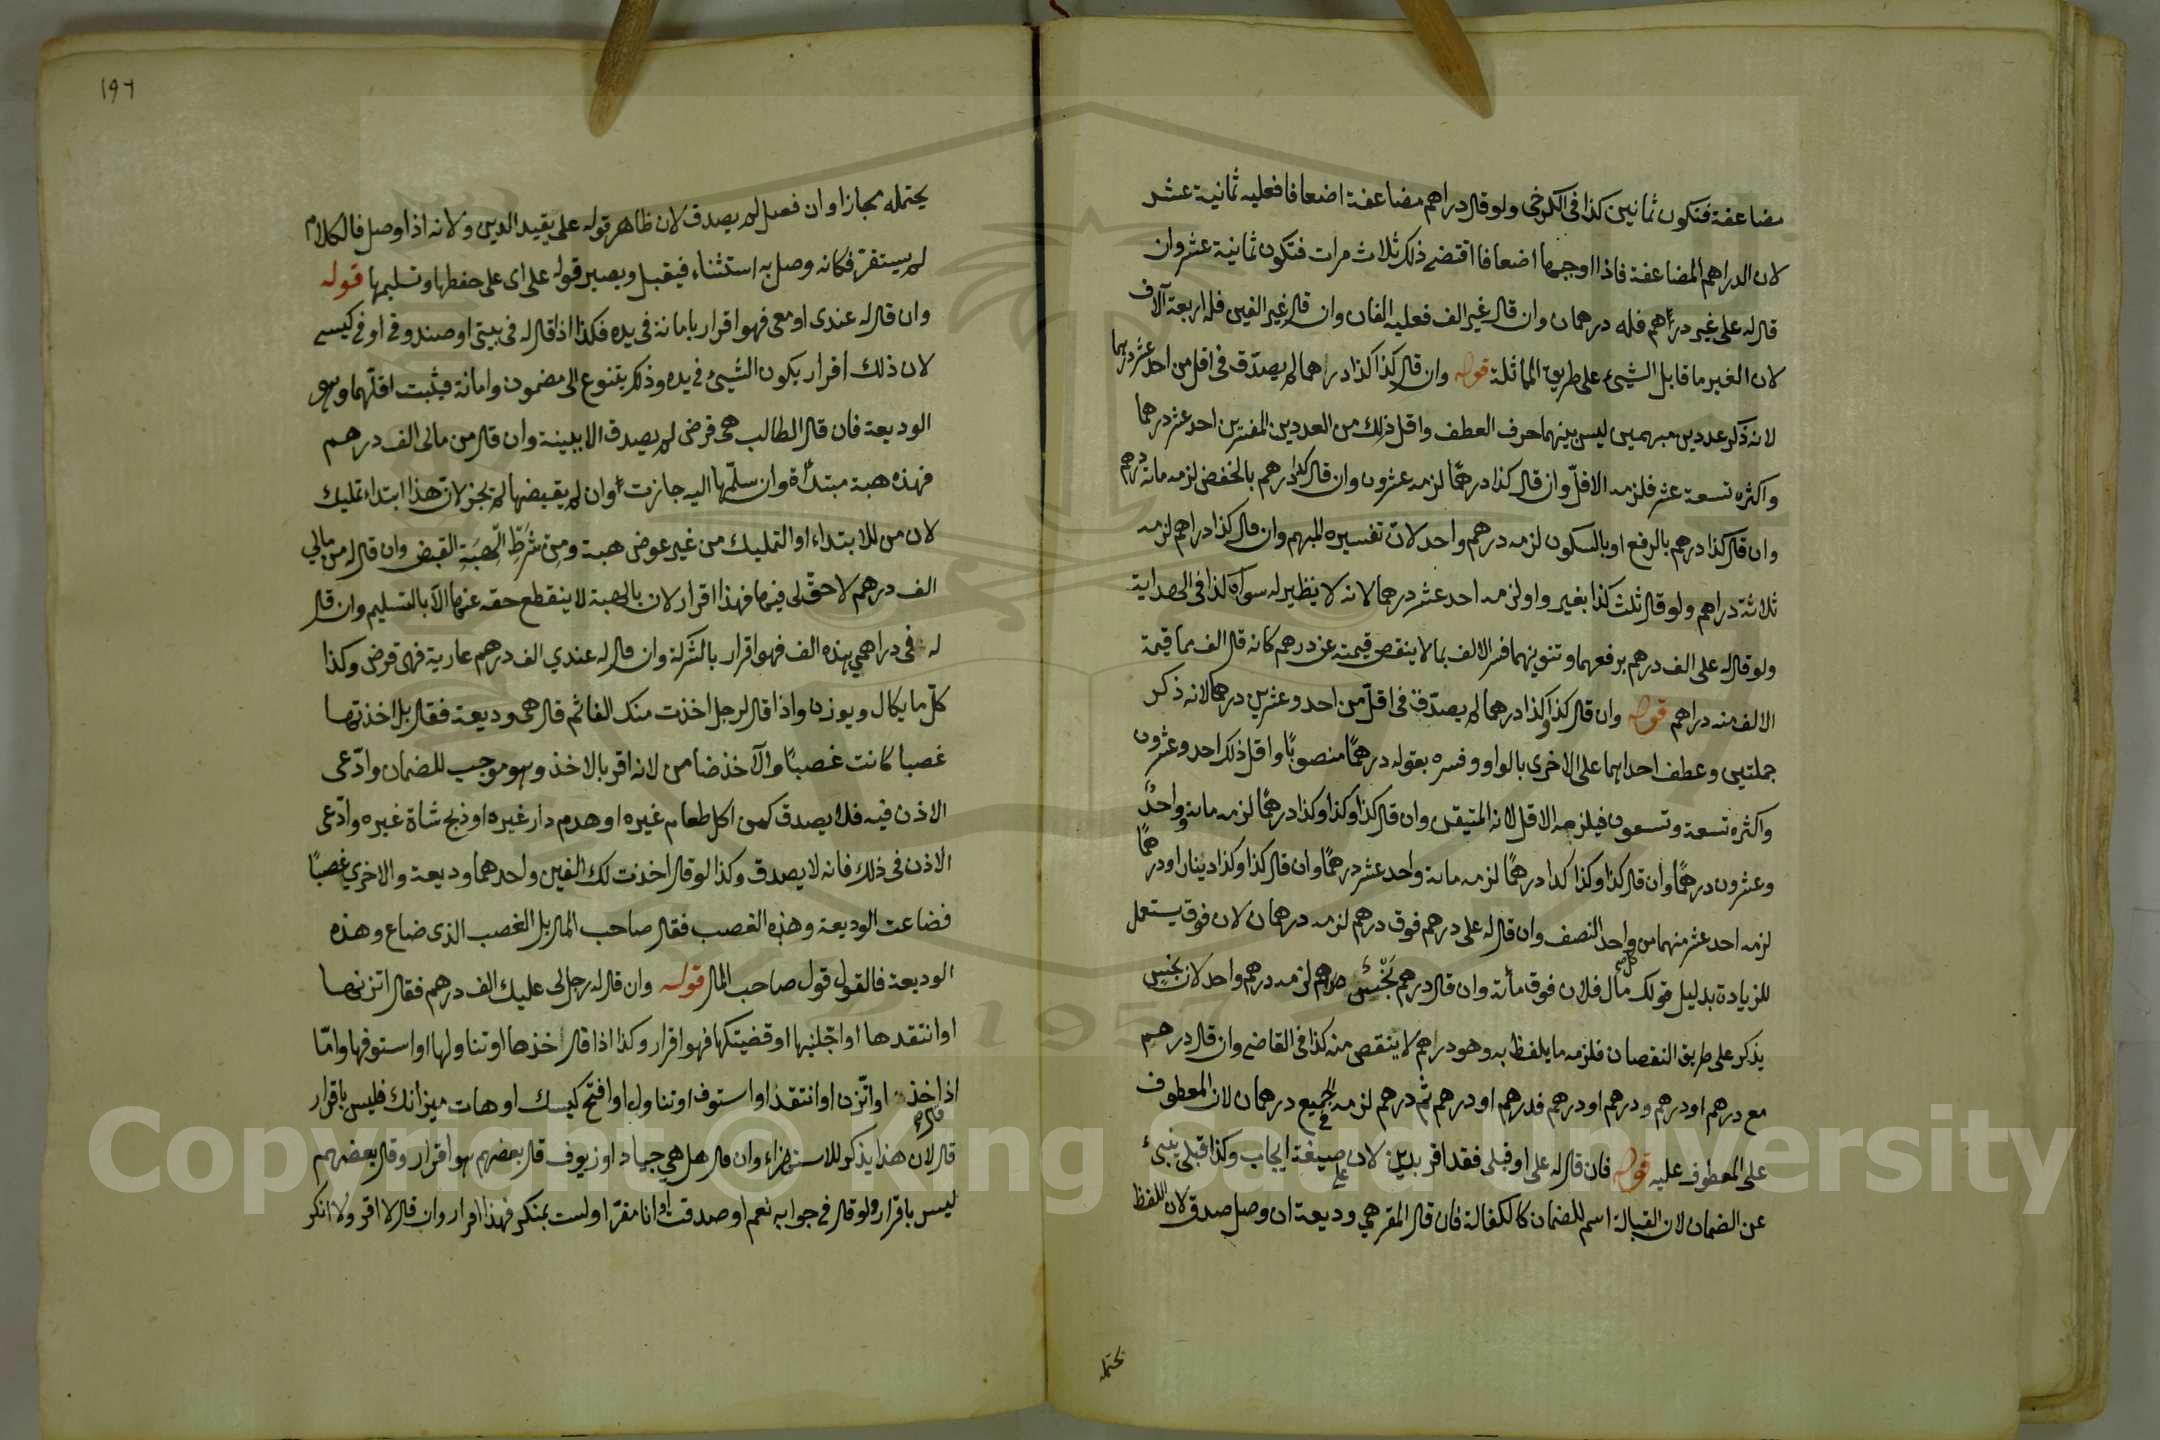 مضاعفة فتكون ثمانين كذا في الكرخي ولو قال دراهم مضاعفة اضعافا فعليه ثمانية عشر
لان الدراهم المضاعفة فاذا اوجبها اضعافا اقتضى ذلك ثلاث مرات فتكون ثمانية عشر وان
قال له علي غير دراهم فله درهمان وان قال غير الف فعليه الفان وان قال غير الفين فله اربعة آلاف
لان الغير ما قابل الشيء على طريق المماثلة قوله وان قال كذا كذا درهما لم يصدّق في اقل من احد عشر درهما
لانه ذكر عددين مبهمين ليس بينهما حرف العطف واقل ذلك من العددين المفسّرين احد عشر درهما
واكثره تسعة عشر فلزمه الاقلّ وان قال كذا درهمًا لزمه عشرون وان قال كذا درهم بالخفض لزمه مائة درهم
وان قال كذا درهم بالرفع او بالسكون لزمه درهم واحد لانّ تفسيره المبهم وان قال كذا دراهم لزمه
ثلاثة دراهم ولو قال ثلث كذا بغير واو لزمه احد عشر درهما لانه لا نظير له سواه كذا في الهداية
ولو قال له علي الف درهم برفعهما وتنوينهما فسر الالف بما لا ينقص قيمته عن درهم كانه قال الف مما قيمة
الالف منه دراهم قوله وان قال كذا وكذا درهما لم يصدّق في اقلّ من احد وعشرين درهما لانه ذكر
جملتين وعطف احداهما على الاخرى بالواو وفسره بقوله درهمًا منصوبًا واقل ذلك احد وعشرون
واكثره تسعة وتسعون فيلزمه الاقل لانه المتيقن وان قال كذا وكذا وكذا درهمًا لزمه مائة واحد
وعشرون درهمًا وان قال كذا وكذا كذا درهمًا لزمه مائة واحد عشر درهمًا وان قال كذا وكذا دينارا ودرهمًا
لزمه احد عشر منهما من كل واحد النصف وان قال له علي درهم فوق درهم لزمه درهمان لان فوق يستعمل
للزيادة بدليل قولك مال فلان فوق مائة وان قال درهم تحت درهم لزمه درهم واحد لان
يذكر على طريق النقصان فلزمه ما يلفظ به وهو دراهم لا ينقص منه كذا في القاضي وان قال درهم
مع درهم او درهم ودرهم او درهم فدرهم او درهم ثم درهم لزمه في الجميع درهمان لان المعطوف
على المعطوف عليه قوله فان قال له علي او قبلي فقد اقر بدين لان علي صيغة ايجاب وكذا قبلي ينبئ
عن الضمان لان القبالة اسم للضمان كالكفالة فان قال المقر هي وديعة ان وصل صدق لان اللفظ
يحتمله
١٩٦
يحتمله مجازا وان فصل لم يصدق لان ظاهر قوله علي يفيد الدين ولانه اذا وصل فالكلام
لم يستقرّ فكانه وصل به استثناء فيقبل ويصير قوله علي اي على حفظها وتسليمها قوله
وان قال له عندي او معي فهو اقرار بامانة في يده فكذا اذا قال له في بيتي او صندوقي او في كيسي
لان ذلك اقرار بكون الشيء في يده وذلك يتنوع الى مضمون وامانة فيثبت اقلّهما وهو
الوديعة فان قال الطالب هي قرض لم يصدق الا ببينة وان قال من مالي الف درهم
فهذه هبة مبتدأة وان سلّمها اليه جازت وان لم يقبضها لم تجز لانّ هذا ابتداء تمليك
لان من للابتداء او التمليك من غير عوض هبة ومِن شَرطِ الهِبَةِ القبض وان قال له من مالي
الف درهم لا حقّ لي فيها فهذا اقرار لان بالهبة لا ينقطع حقه عنها الّا بالتسليم وان قال
له في دراهمي هذه الف فهو اقرار بالشركة وان قال له عندي الف درهم عارية فهي قرض وكذا
كلّ ما يكال ويوزن واذا قال لرجل اخذت منك الفا ثم قال هي وديعة فقال بل اخذتها
غصبا كانت غصبًا والآخذ ضامن لانه اقر بالاخذ وهو موجب للضمان وادّعى
الاذن فيه فلا يصدق كمن اكل طعام غيره او هدم دار غيره او ذبح شاة غيره وادّعى
الاذن في ذلك فانه لا يصدق وكذا لو قال اخذت لك الفين واحدهما وديعة والاخرى غصبًا
فضاعت الوديعة وهذه الغصب فقال صاحب المال بل الغصب الذي ضاع وهذه
الوديعة فالقول قول صاحب المال قوله وان قال له رجل لي عليك الف درهم فقال اتزنها
او انتقدها او اجّلنيها او قضيتكها فهو اقرار وكذا اذا قال خذها او تناولها او استوفها وامّا
اذا قال خذ او اتّزن او انتقد او استوف او تناول او افتح كيسك او هات ميزانك فليس باقرار
قال لان هذا يذكر للاستهزاء وان قال هل هي جياد او زيوف قال بعضهم هو اقرار وقال بعضهم
ليس باقرار ولو قال في جوابه نعم او صدقت او انا مقرّ او لست بمنكر فهذا اقرار وان قال لا اقر ولا انكر
Copyright © King Saud University
1957